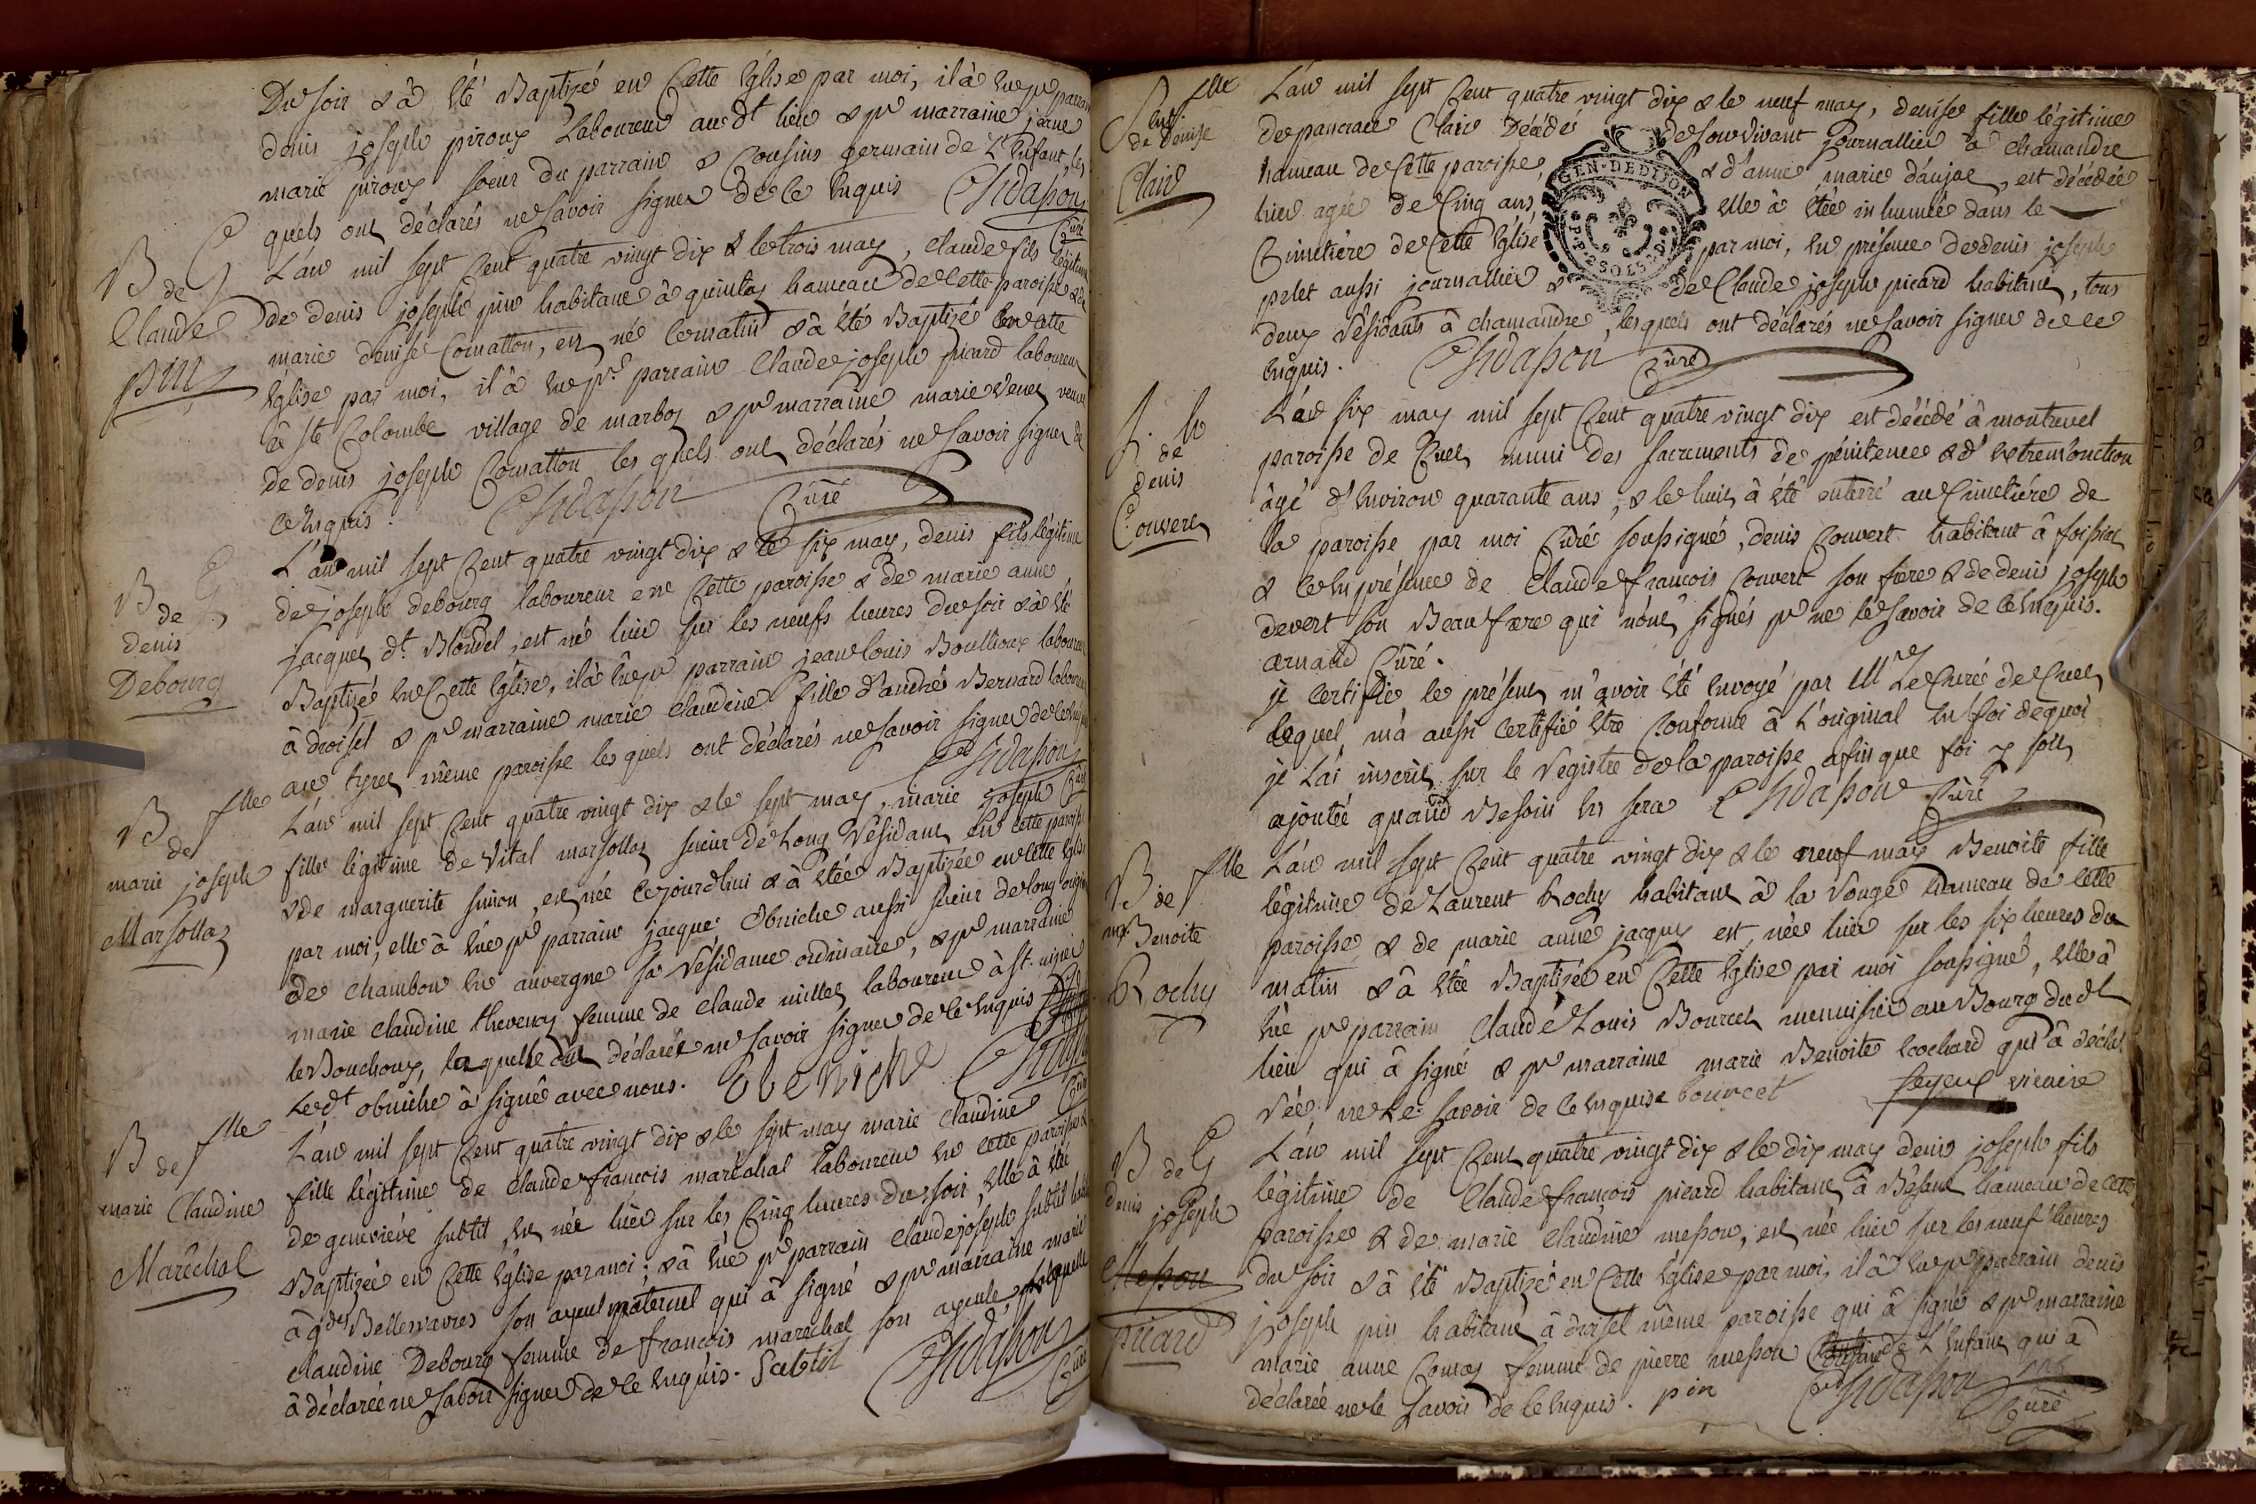 Du soir & â Eté Baptizé en Cette Eglise par moi, il â Eu pr parrain
denis joseph piroux Laboureur au dt lieu & pr marraine jeanne
marie piroux soeur du parrain & Cousins germain de L'Enfant, les
quels ont déclarés ne savoir signer de ce Enquis Chidasson
Curé
B de G
Claude
pin
L'an mil sept Cent quatre vingt dix & le trois may, Claude fils légitime
de denis joseph pin habitant â quintas hameau de Cette paroisse & de
marie denise Comatton, est né Ce matin & â Eté Baptizé En Cette
Eglise par moi, il â Eu pr parrain Claude joseph picard laboureur
â Ste Colombe village de marboz & pr marraine marie veuve
de denis joseph Comatton les quels ont déclarés ne savoir signer de
Ce Enquis. Chidasson Curé
B de G
denis
Debourg
L'an mil sept Cent quatre vingt dix & le six may, denis fils légitime
de joseph debourg laboureur en Cette paroisse & de marie anne
jacquet dt Blondel, est né hier sur les neufs heures du soir & â Eté
Baptizé En Cette Eglise, il â Eu pr parrain jean louis Boullioux laboureur
â droisel & pr marraine marie Claudine fille d'andré Bernard laboureur
au tyret même paroisse les quels ont déclarés ne savoir signer de Ce Enquis
Chidasson
Curé
B de flle
marie joseph
Marsollaz
L'an mil sept Cent quatre vingt dix & le sept may, marie joseph
fille légitime de Vital marsollaz scieur de Long Résidant En Cette paroisse
& de marguerite simon, est née Ce jourdhui & â Etée Baptizée en Cette Eglise
par moi, elle â Eue pr parrain jacque Obniche aussi scieur de long origin
de chambon En auvergne sa Résidance ordinaire, & pr marraine
marie Claudine thevenaz femme de Claude millet laboureur â St. nizier
le Bouchoux, la quelle dit déclarée ne savoir signer de Ce Enquis
Ledt obniche â signé avec nous. obeniche Chidasson
Curé
B de flle
marie Claudine
Maréchal
L'an mil sept Cent quatre vingt dix & le sept may marie Claudine
fille légitime de Claude francois maréchal laboureur En Cette paroisse &
de geneviéve subtil, est née hier sur les Cinq heures du soir, Elle â été
Baptizée en Cette Eglise par moi; & â Eue pr parrain Claude joseph subtil
â gdes Bellesvavres son ayeul maternel qui â signé & pr marraine marie
Claudine Debourg femme de francois maréchal son ayeule, la quelle
â déclarée ne savoir signer de Ce Enquis. Subtil Chidasson
Curé
Ent flle
de denise
Clair
L'an mil sept Cent quatre vingt dix & le neuf may, denise fille légitime
de pancrace Clair Décédé de son vivant journallier â chamandre
hameau de Cette paroisse, & d'anne marie daujat, est décédée
hier agée de Cinq ans, Elle â Etée inhumée dans le
Cimetiére de Cette Eglise par moi, En présence de denis joseph
pelet aussi journallier & de Claude joseph picard habitant, tous
deux Résidants â chamandre, lesquels ont déclarés ne savoir signer de ce
Enquis. Chidasson Curé
GEN·DE DIJON
de
denis
Couvert
L'an six may mil sept Cent quatre vingt dix est décédé â montrevel
paroisse de Cuet muni des sacrements de pénitence & d'extremonction
âgé d'Environ quarante ans, & le huit â été enterré au Cimetiére de
la paroisse par moi Curé soussigné, denis Couvert habitant â foissiat
& ce En présence de Claude francois Couvert son frere & de denis joseph
devert son Beaufrere qui n'ont signés pr ne le savoir de Ce Enquis.
arnaud Curé.
je Certifie le présent m'avoir Eté Envoyé par Mr Le Curé de Cuet
lequel m'a aussi Certifié Etre Conforme â L'original En foi de quoi
je L'ai inscrit sur le Registre de la paroisse afin que foi y soit
ajoutée quand Besoin En sera Chidasson Curé
B de flle
Benoite
Rochy
L'an mil sept Cent quatre vingt dix & le neuf may Benoite fille
légitime de Laurent Rochy habitant â la Vouge hameau de Cette
paroisse & de marie anne jacquet est née hier sur les six heures du
matin & â Etée Baptizée en Cette Eglise par moi soussigné, Elle â
Eue pr parrain Claude Louis Bourcet menuisier au Bourg dudt
lieu qui â signé & pr marraine marie Benoite Cochard qui â décla
rée ne Le savoir de Ce Enquise bourcet feyeux vicaire
B de G
denis joseph
Messon
picard
L'an mil sept Cent quatre vingt dix & le dix may denis joseph fils
légitime de Claude francois picard habitant â Bésant hameau de Cette
paroisse & de marie Claudine messon, est née hier sur les neuf heures
du soir & â été Baptizé en Cette Eglise par moi, il â Eu pr parrain denis
joseph pin habitant â droisel même paroisse qui â signé & pr marraine
marie anne Comas femme de pierre messon de L'Enfant qui â
declarée ne le savoir de Ce Enquis. pin Chidasson
Curé